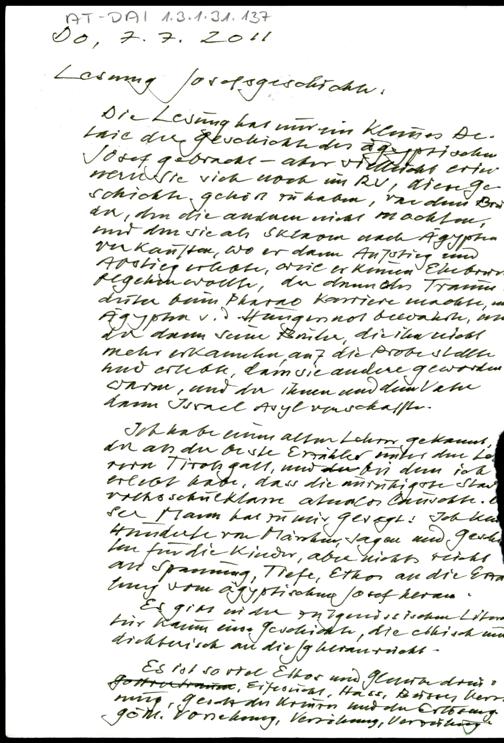 AT-DAI 1.3.1.31.137
Do, 7. 7. 2011
Lesung Josefsgeschichte.
Die Lesung hat nur ein kleines De-
tail der Geschichte des ägyptischen
Josef gebracht – aber vielleicht erin-
nern Sie sich noch im RU, diese Ge-
schichte gehört zu haben, von dem Brü
der, den die anderen nicht mochten,
und den sie als Sklaven nach Ägypten
verkauften, wo er dann Aufstieg und
Abstieg erlebte, wie er keinen Ehebruch
begehen wollte, der dann als Traum
deuter beim Pharao Karriere machte, u
Ägypten v. d. Hungersnot bewahrte, un
der dann seine Brüder, die ihn nicht
mehr erkannten, auf die Probe stellte
und erlebte, dass sie andere geworden
waren, und der ihnen und dem Vater
dann Israel Asyl verschaffte.
Ich habe einen alten Lehrer gekannt,
der als der beste Erzähler unter den Leh
rern Tirols galt, und bei dem ich
erlebt habe, dass die unruhigste
Volksschulklasse atemlos lauschte.
ser Mann hat zu mir gesagt: Ich
Hunderte von Märchen, Sagen und Gesch
ten für die Kinder, aber nichts reicht
an Spannung, Tiefe, Ethos an die Erzä
lung vom ägyptischen Josef heran.
Es gibt in der zeitgenössischen Litera
tur kaum eine Geschichte, die ethisch und
dichterisch an diese heranreicht.
Es ist so viel Ethos und Glaube drin:
Eifersucht, Hass,
göttl. Vorsehung, Versöhnung,